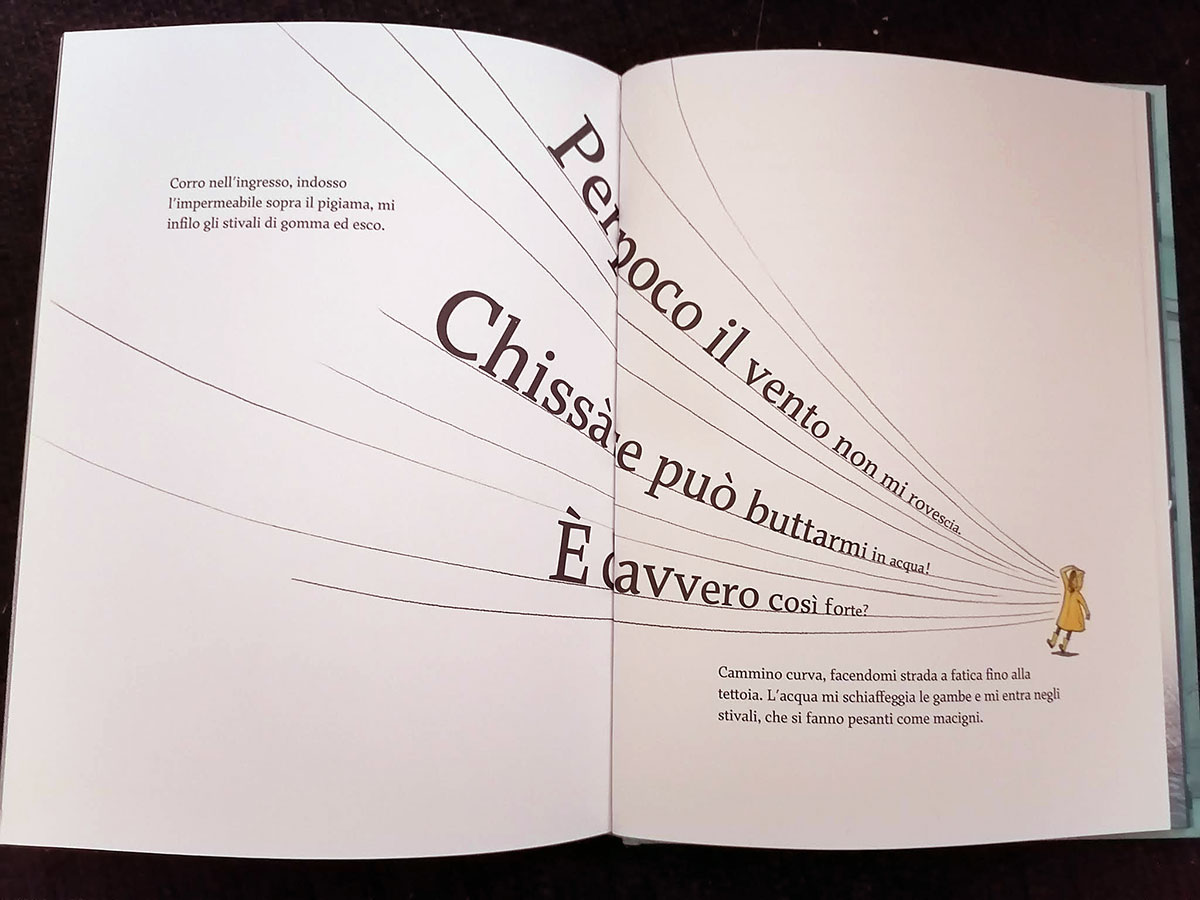 Corro nell'ingresso, indosso
l'impermeabile sopra il pigiama, mi
infilo gli stivali di gomma ed esco.
Per poco il vento non mi rovescia.
Chissà se può buttarmi in acqua!
È davvero così forte?
Cammino curva, facendomi strada a fatica fino alla
tettoia. L'acqua mi schiaffeggia le gambe e mi entra negli
stivali, che si fanno pesanti come macigni.